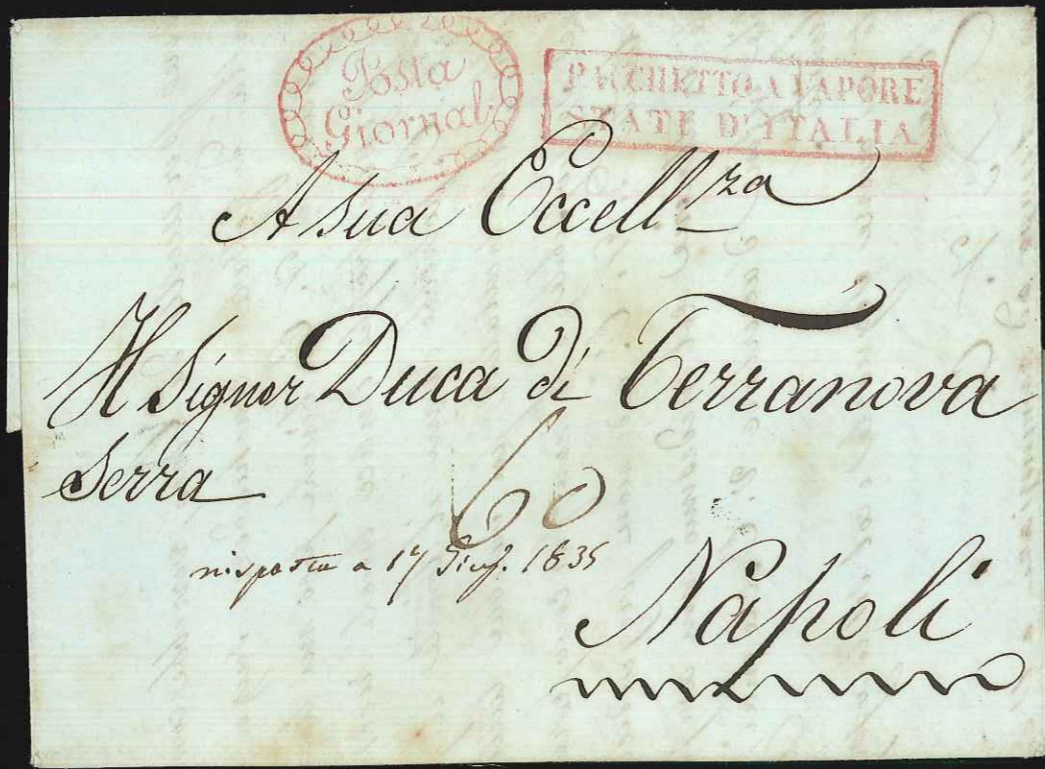 Posta
Giornal.
PACCHETTO A VAPORE
STATI D'ITALIA
A sua Eccell.za
Il Signor Duca di Terranova
Serra
60
risposta a 17 Giug. 1835
Napoli